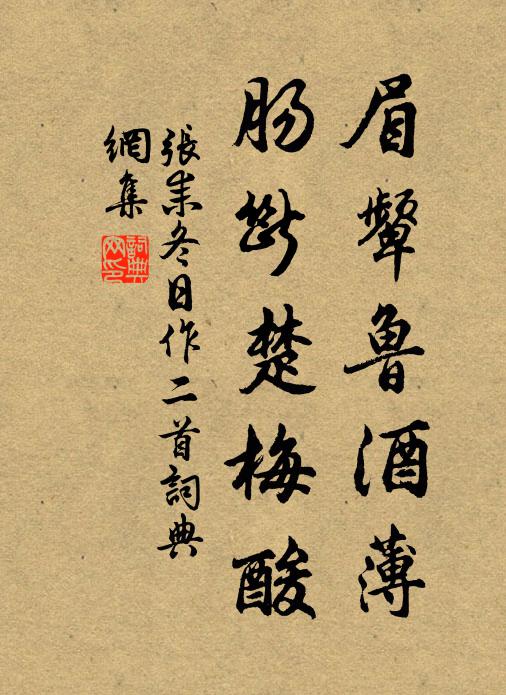 眉颦魯酒薄
腸斷楚梅酸
張耒冬日作二首詞典
網集
詞典网印